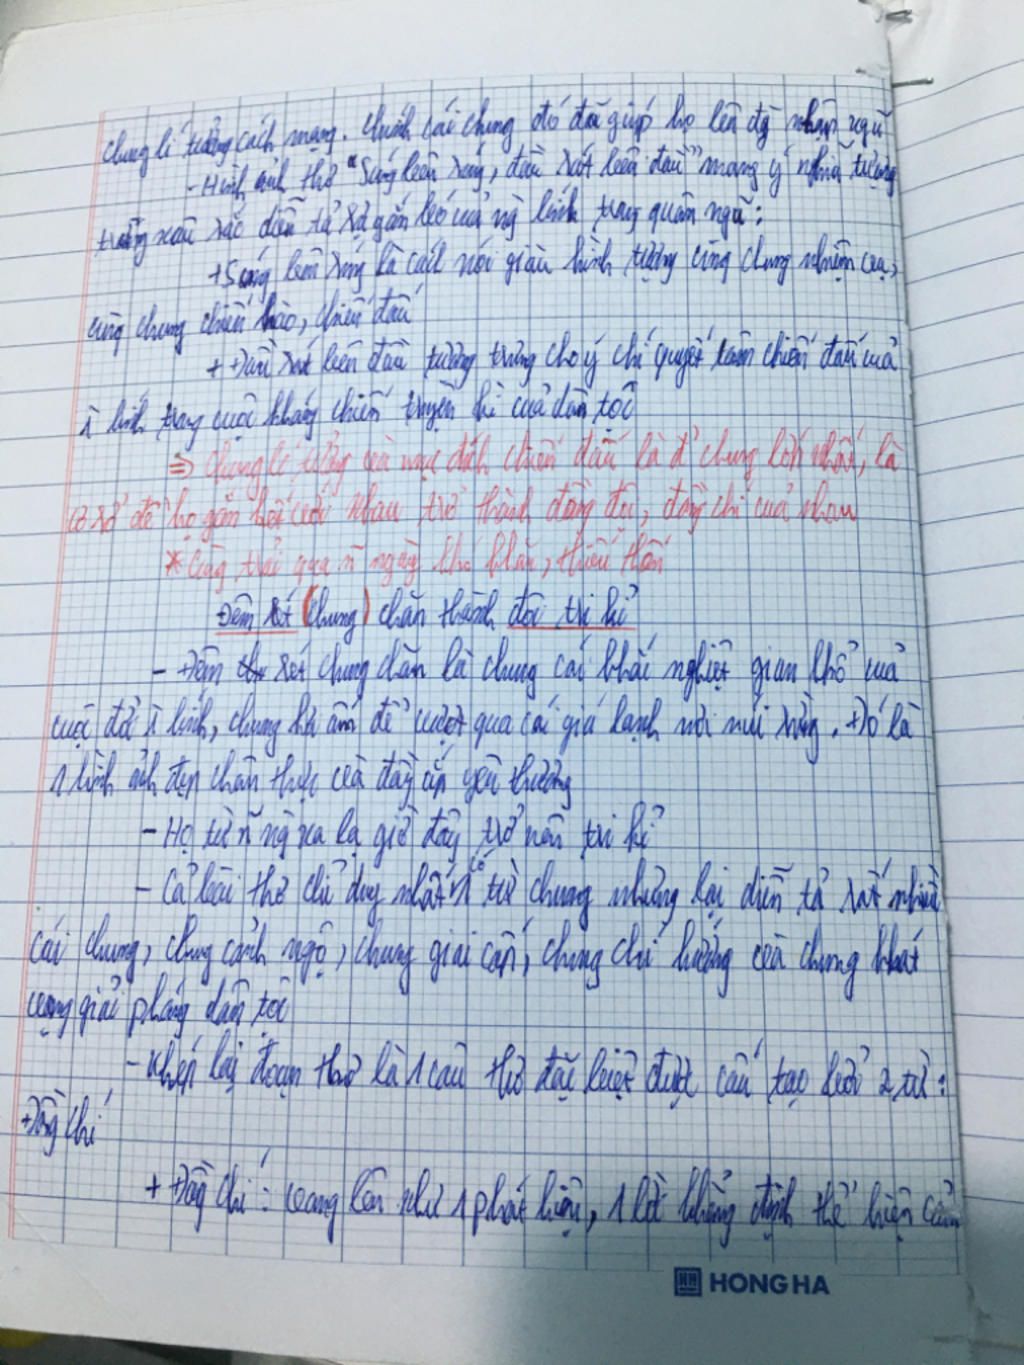 chung lí tưởng cách mạng. Chính cái chung đó đã giúp họ lên đg nhập ngũ
- Hình ảnh thơ "Súng bên súng, đầu sát bên đầu" mang ý nghĩa tượng
trưng sâu sắc diễn tả sự gắn bó của ng lính trong quân ngũ:
+ Súng bên súng là cách nói giàu hình tượng cùng chung nhiệm vụ,
cùng chung chiến hào, chiến đấu
+ Đầu sát bên đầu tượng trưng cho ý chí quyết tâm chiến đấu của
lính trong cuộc kháng chiến trường kì của dân tộc
⇒ Chung lí tưởng và mục đích chiến đấu là chung lớn nhất, là
cơ sở để họ gắn kết với nhau trở thành đồng đội, đồng chí của nhau
* Cùng trải qua ñ ngày khó khăn, thiếu thốn
Đêm rét (chung) chăn thành đôi tri kỉ
- Đêm rét chung chăn là chung cái khắc nghiệt gian khổ của
cuộc đời lính, chung hơi ấm để vượt qua cái giá lạnh nơi núi rừng. Đó là
1 hình ảnh đẹp chân thực và đầy ắp yêu thương
- Họ từ ñ ng xa lạ giờ đây trở nên tri kỉ
- Cả bài thơ chỉ duy nhất có 1 từ chung nhưng lại diễn tả rất nhiều
cái chung, chung cảnh ngộ, chung giai cấp, chung chí hướng và chung khát
vọng giải phóng dân tộc
- Khép lại đoạn thơ là 1 câu thơ đặc biệt được cấu tạo bởi 2 từ:
Đồng chí
+ Đồng chí: vang lên như 1 phát hiện, 1 lời khẳng định thể hiện cảm
HONG HA